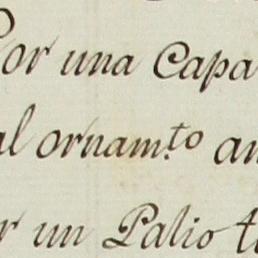 Por una Capa
al ornam.to an
r un Palio t